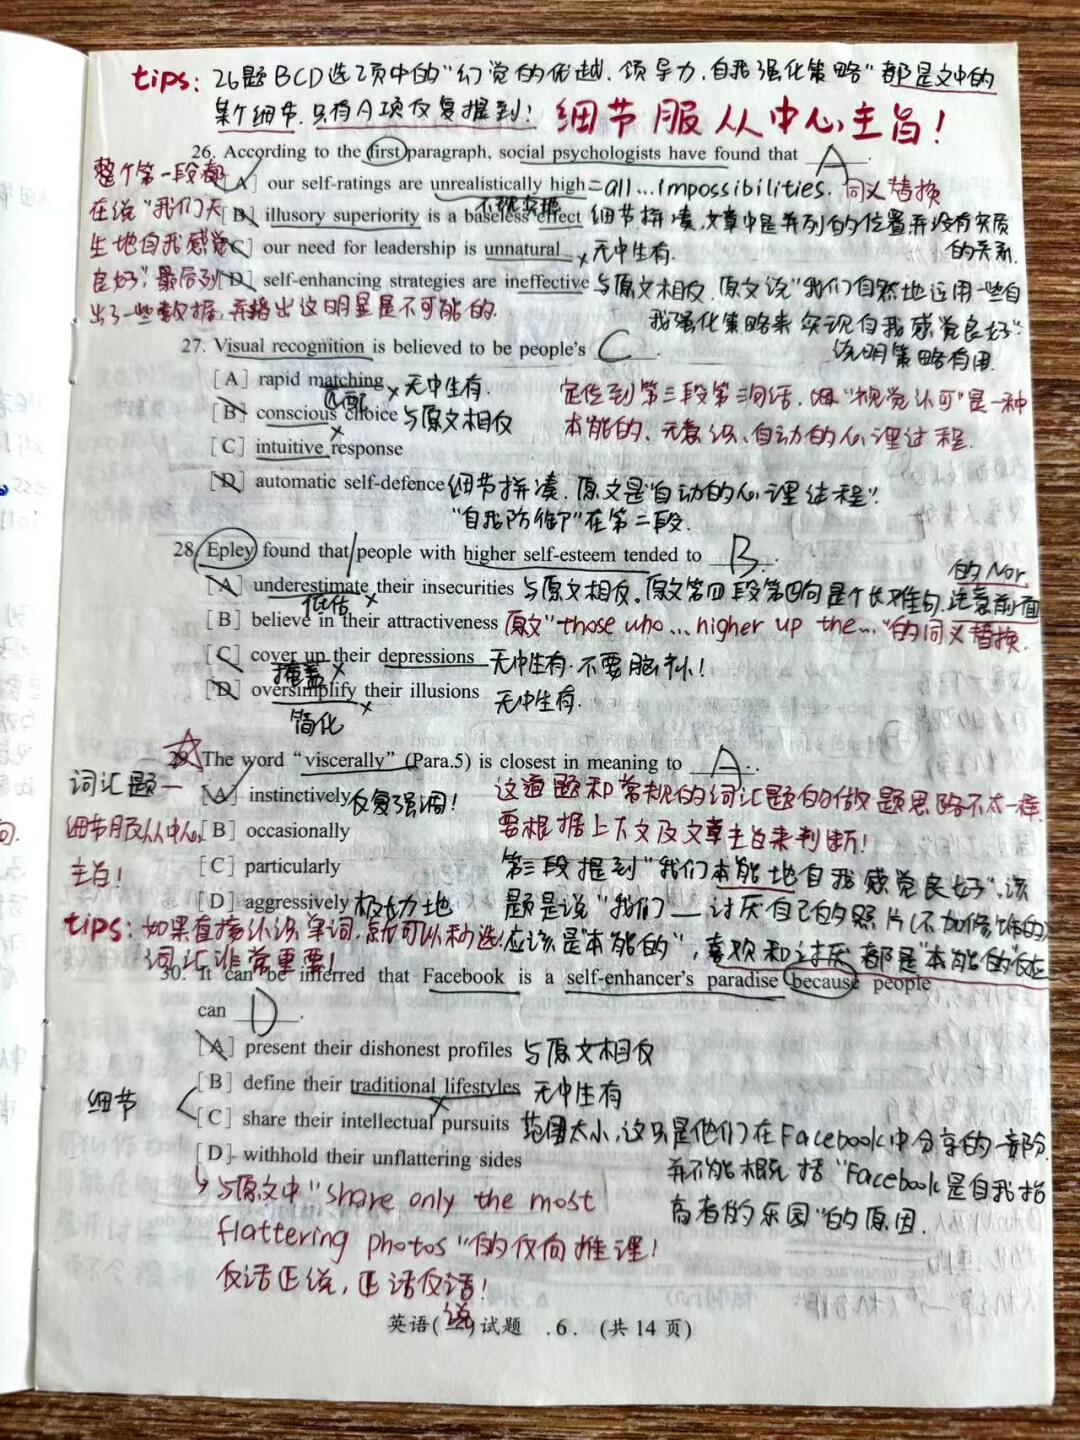 tips: 26题BCD选项中的"幻觉的优越、领导力、自我强化策略"都是文中的
某个细节,只有A项反复提到! 细节服从中心主旨!
26. According to the first paragraph, social psychologists have found that A.
整个第一段都
在说"我们天
生地自我感觉
良好",最后列
出了一些数据,并指出这明显是不可能的.
[A] our self-ratings are unrealistically high = all...impossibilities. 同义替换
不现实地
[B] illusory superiority is a baseless effect 细节拼凑,文章中是并列的位置并没有实质
的关系.
[C] our need for leadership is unnatural × 无中生有.
[D] self-enhancing strategies are ineffective 与原文相反.原文说"我们自然地运用一些自
我强化策略来实现自我感觉良好"
说明策略有用.
27. Visual recognition is believed to be people's C.
[A] rapid matching × 无中生有.
匹配
[B] conscious choice 与原文相反
×
[C] intuitive response
定位到第三段第三句话,"视觉认可"是一种
本能的、无意识、自动的心理过程.
[D] automatic self-defence 细节拼凑.原文是"自动的心理过程".
"自我防御"在第二段.
28. Epley found that people with higher self-esteem tended to B.
[A] underestimate their insecurities 与原文相反。原文第四段第四句是个长难句,注意前面
的Nor
低估 ×
[B] believe in their attractiveness 原文"those who...higher up the..."的同义替换.
[C] cover up their depressions 无中生有.不要脑补!
掩盖 ×
[D] oversimplify their illusions 无中生有.
简化 ×
29. The word "viscerally" (Para.5) is closest in meaning to A.
词汇题—
细节服从中心
主旨!
[A] instinctively 反复强调!
[B] occasionally
[C] particularly
[D] aggressively 极力地
这道题和常规的词汇题的做题思路不太一样,
要根据上下文及文章主旨来判断!
第三段提到"我们本能地自我感觉良好",该
题是说"我们__讨厌自己的照片(不加修饰的)
应该是"本能的",喜欢和讨厌都是"本能的"反应
tips: 如果直接认识单词,就可以秒选!
词汇非常重要!
30. It can be inferred that Facebook is a self-enhancer's paradise because people
can D.
[A] present their dishonest profiles 与原文相反
[B] define their traditional lifestyles 无中生有
×
细节
[C] share their intellectual pursuits 范围太小,这只是他们在Facebook中分享的一部分,
并不能概括"Facebook是自我抬
高者的乐园"的原因.
[D] withhold their unflattering sides
与原文中"share only the most
flattering photos"的反向推理!
反话正说,正话反说!
英语(一)试题 .6. (共14页)